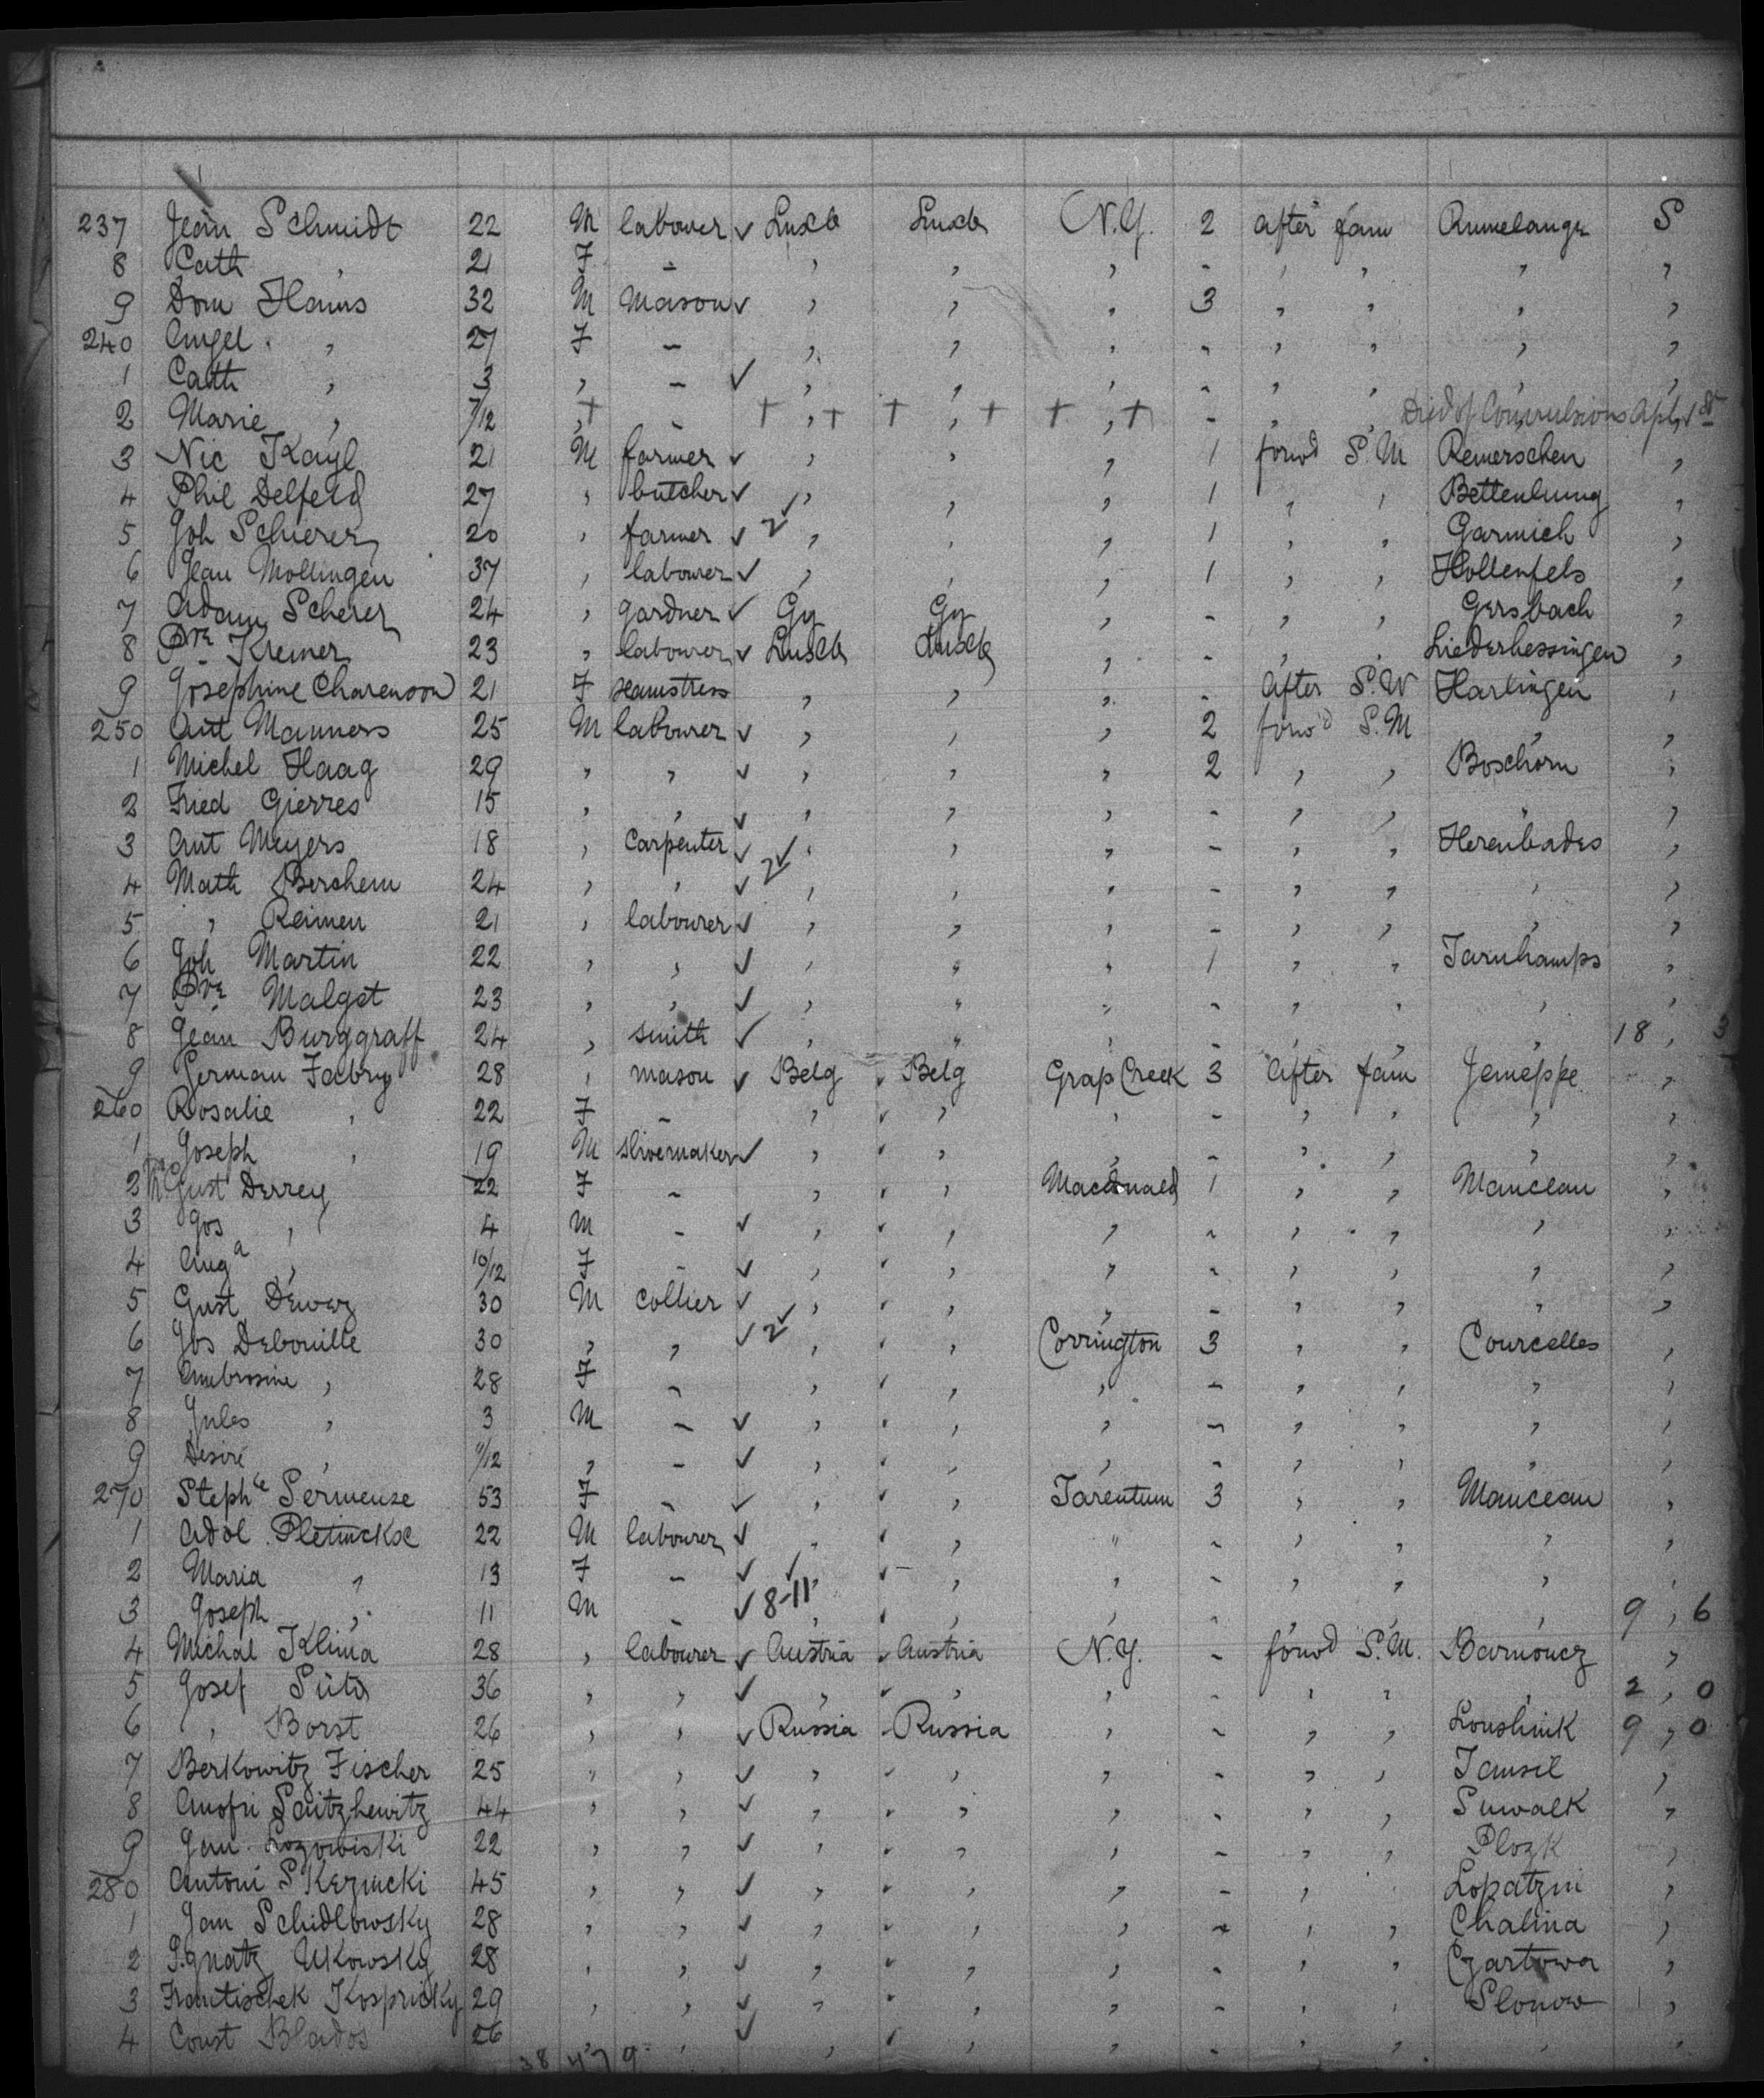 237 Jean Schmidt 22 M labourer ✓ Luxb Luxb N.Y. 2 after fam Rumelange S
8 Cath , 21 F - , , , - , , , ,
9 Dom Hams 32 M Mason ✓ , , , 3 , , , ,
240 Angel , 27 F - , , , - , , , ,
1 Cath , 3 , - ✓ , , , - , , , ,
2 Marie , 7/12 , + - + , + + , + + , + - , , Died of Convulsions Apl, 1st
3 Nic Kayl 21 M farmer ✓ , , , 1 forwd S.M Remerschen ,
4 Phil Delfeld 27 , butcher ✓ , , , 1 , , Bettenburg ,
5 Joh Scherer 20 , farmer ✓ 2✓ , , , 1 , , Garnich ,
6 Jean Mollingen 37 , labourer ✓ , , , 1 , , Hollenfels ,
7 Adam Scherer 24 , gardner ✓ Gy Gy , - , , Gersbach ,
8 Pre Kremer 23 , labourer ✓ Luxb Luxb , - , , ,
9 Josephine Charenson 21 F seamstress , , , - after S.W Harlingen ,
250 Ant Manners 25 M labourer ✓ , , , 2 forwd S.M , ,
1 Michel Haag 29 , , ✓ , , , 2 , , Boschorn ,
2 Fried Gierres 15 , , ✓ , , , - , , " ,
3 Ant Meyers 18 , Carpenter ✓ 2✓ , , , - , , ,
4 Math Berchem 24 , , ✓ , , , - , , , ,
5 , Reimen 21 , labourer ✓ , , , - , , , ,
6 Joh Martin 22 , , ✓ , " " 1 , , Tarnhamps ,
7 Pre Malget 23 , , ✓ , " " - , , , ,
8 Jean Burggraff 24 , smith ✓ , " , - , , , 18 , 3
9 German Fabry 28 , mason ✓ Belg ✓ Belg Grap Creek 3 after fam Jemeppe ,
260 Rosalie , 22 F - , ✓ , , - , , , ,
1 Joseph , 19 M shoemaker ✓ , ✓ , , - , , , ,
2 Gust Derrey 22 F - , ✓ , Macdonald 1 , , Manceau ,
3 Jos , 4 M - ✓ , ✓ , , - , , , ,
4 Auga , 10/12 F - ✓ , ✓ , , - , , , ,
5 Gust Dewez 30 M collier ✓ , ✓ , , - , , , ,
6 Jos Debouille 30 , , ✓ 2✓ , ✓ , Corrington 3 , , Courcelles ,
7 Ambrosine , 28 F - , ✓ , , - , , , ,
8 Jules , 3 M - ✓ , ✓ , , - , , , ,
9 Desiré , /12 , - ✓ , ✓ , , - , , , ,
270 Stephie Sermeuse 53 F - ✓ , ✓ , Tarentum 3 , , Manceau ,
1 Adol. Pletinckx 22 M labourer ✓ , ✓ , " - , , , ,
2 Maria , 13 F - ✓ ✓ , ✓ , , - , , , ,
3 Joseph , 11 M - ✓ 8-11 , ✓ , , - , , , 9 , 6
4 Michal Klima 28 , labourer ✓ Austria ✓ Austria N.Y. - forwd S.M. Barnoucz ,
5 Josef Suta 36 , , ✓ , ✓ , , - , , , 2 , 0
6 , Borst 26 , , ✓ Russia ✓ Russia , - , , 9 , 0
7 Berkowitz Fischer 25 " , ✓ , ✓ , , - , , Tamsil ,
8 Anofri Saitzhewitz 44 , , ✓ , ✓ , , - , , Suwalk ,
9 Jan Lozowiski 22 , , ✓ , ✓ , , - , , Plozk ,
280 Antoni Skezincki 45 , , ✓ , ✓ , , - , , Lopatzin ,
1 Jan Schidlowsky 28 , , ✓ , ✓ , , - , , Chalina ,
2 Ignatz Ukowsky 28 , , ✓ , ✓ , , - , , Czartowa ,
3 Frantischek Kospricky 29 , , ✓ , ✓ , , - , , Slonow ,
4 Const Blados 26 , ✓ , ✓ , , - , , , ,
38 47 9